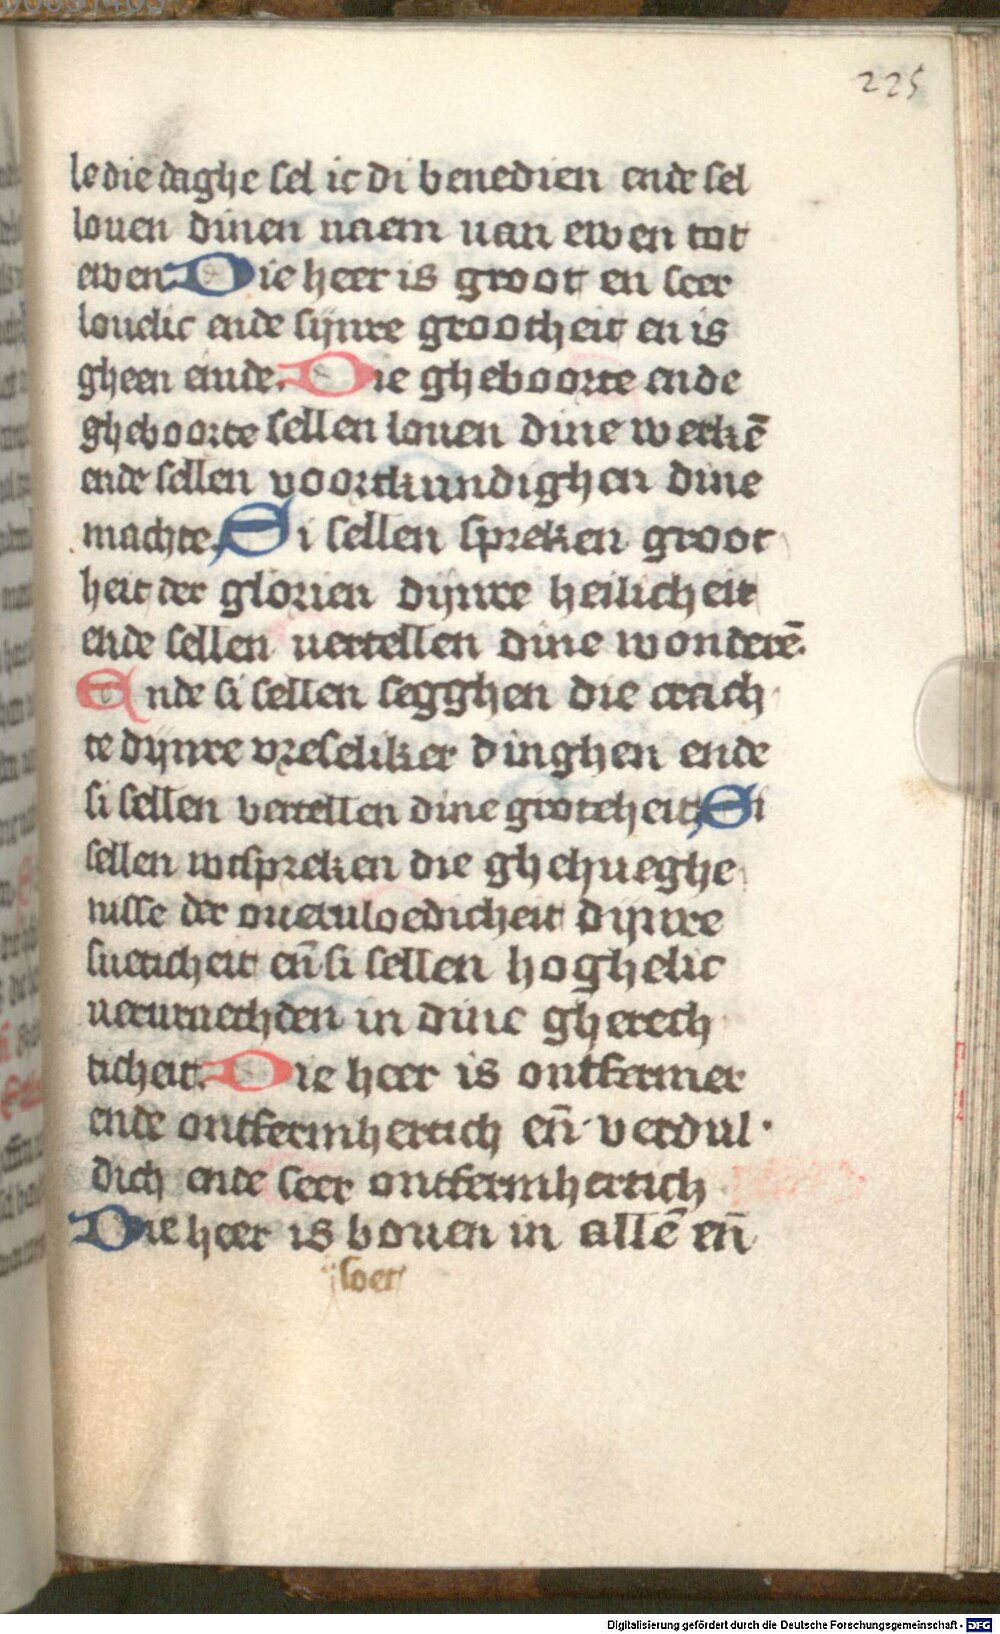 225
le die daghe sel ic di benedien ende sel
louen dinen naem uan ewen tot
ewen Die heer is groot en seer
louelic ende sijnre grootheit en is
gheen einde. Die gheboorte ende
gheboorte sellen louen dine werkē
ende sellen voortkundighen dine
machte. Si sellen spreken groot
heit der glorien dijnre heilicheit
ende sellen uertellen dine wonderē.
Ende si sellen segghen die crach
te dijnre vreseliker dinghen ende
si sellen vertellen dine groteheit. Si
sellen wtspreken die ghehueghe
nisse der ouervloedicheit dijnre
sueticheit en̄ si sellen hoghelic
ueruruechden in dine gherech
ticheit. Die heer is ontfermer
ende ontfermhertich en̄ verdul
dich ende seer ontfermhertich
Die heer is bouen in allē en̄
soet
Digitalisierung gefördert durch die Deutsche Forschungsgemeinschaft - DFG